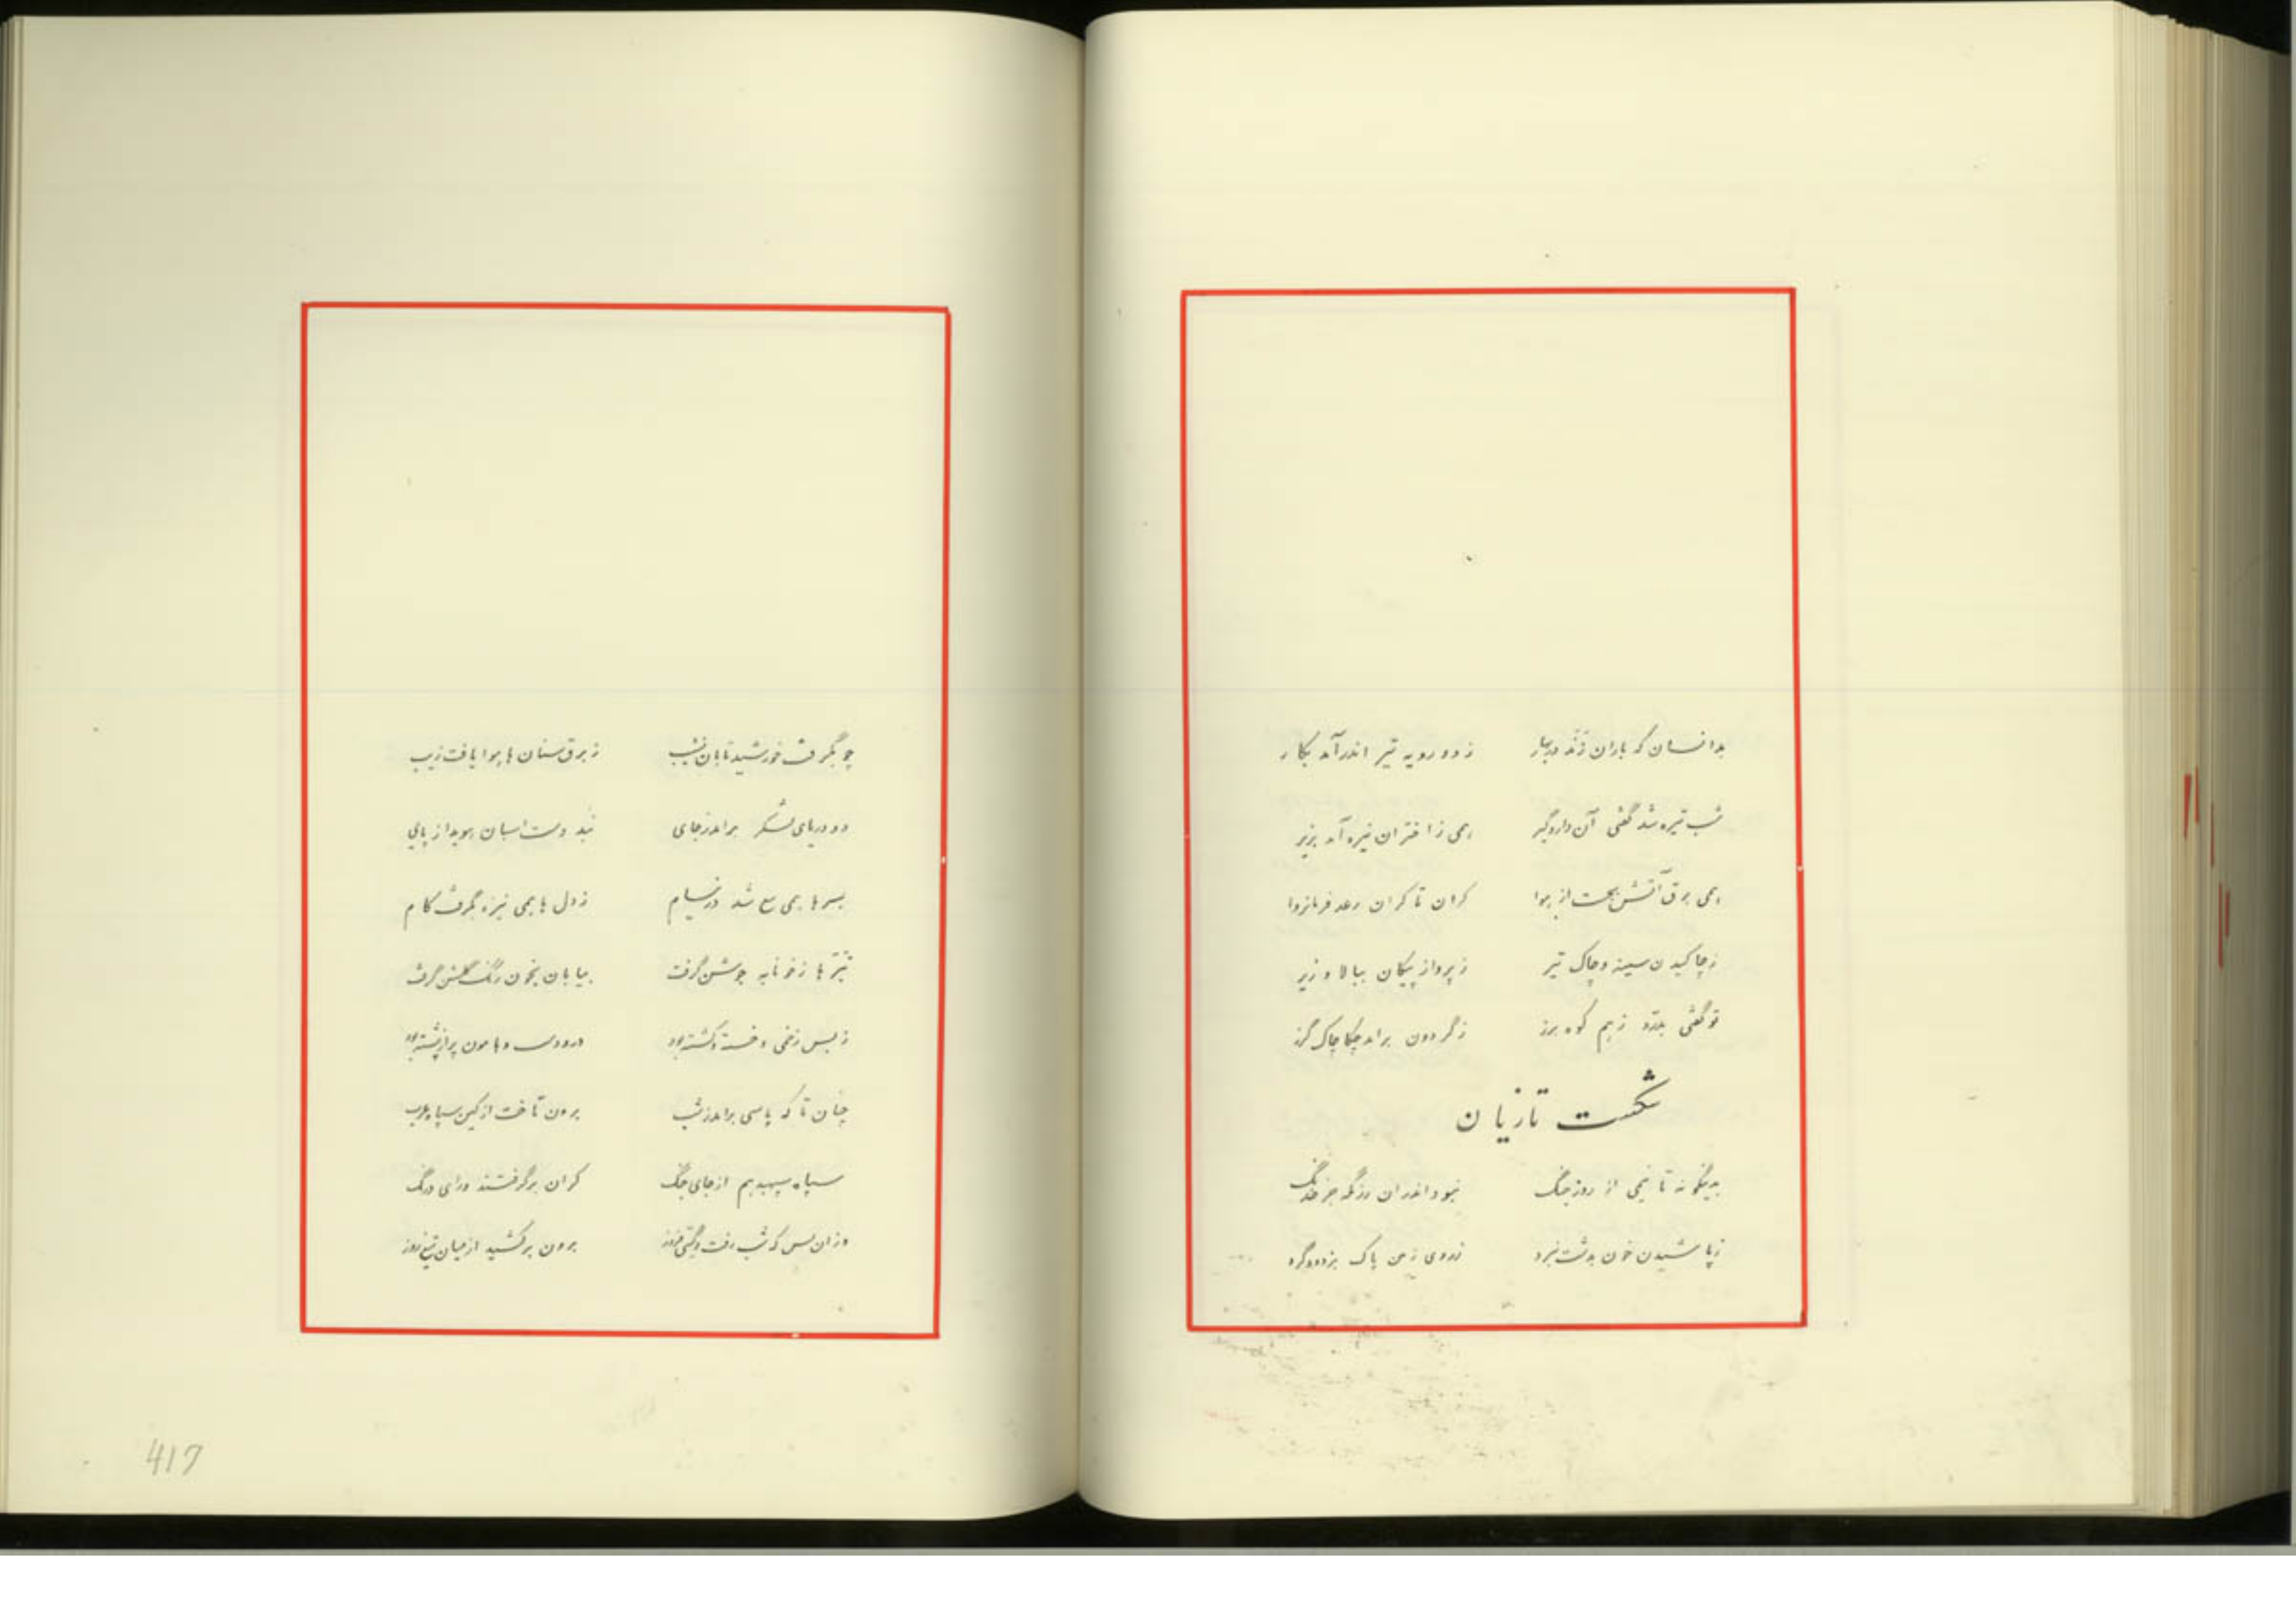 بدانسان که باران زند در بهار    ز دو رویه تیر اندر آمد بکار
شب تیره شد گفتی آن دار و گیر    همی ز اختران نیزه آمد بزیر
همی برق آتش بجست از هوا    کران تا کران رعد فرمانروا
ز چاکیدن سینه و چاک تیر    ز پرواز پیکان ببالا و زیر
تو گفتی بدرد ز هم کوه برز    ز گردون برامد چکاچاک گرز
شکست تازیان
بدینگونه تا نیمی از روز جنگ    نبود اندران رزمگه جز خدنگ
ز پاشیدن خون بدشت نبرد    ز روی زمین پاک بزدود گرد
چو بگرفت خورشید تابان نشیب    ز برق سنان ها هوا یافت زیب
دو دریای لشکر برامد ز جای    نبد دست اسبان هویدا ز پای
بسرها همی تیغ شد در نیام    ز دل ها همی نیزه بگرفت کام
ها ز خونابه جوشن گرفت    بیابان بخون رنگ گلشن گرفت
ز بس زخمی و خسته و کشته بود    در و دشت و هامون پر از پشته بود
چنان تا که پاسی برامد ز شب    برون تاخت از کین سپاه عرب
سپاه سپهبد هم از جای جنگ    کران برگرفتند و رای درنگ
وزان پس که شب رفت و گیتی فروز    برون برکشید از میان تیغ روز
417